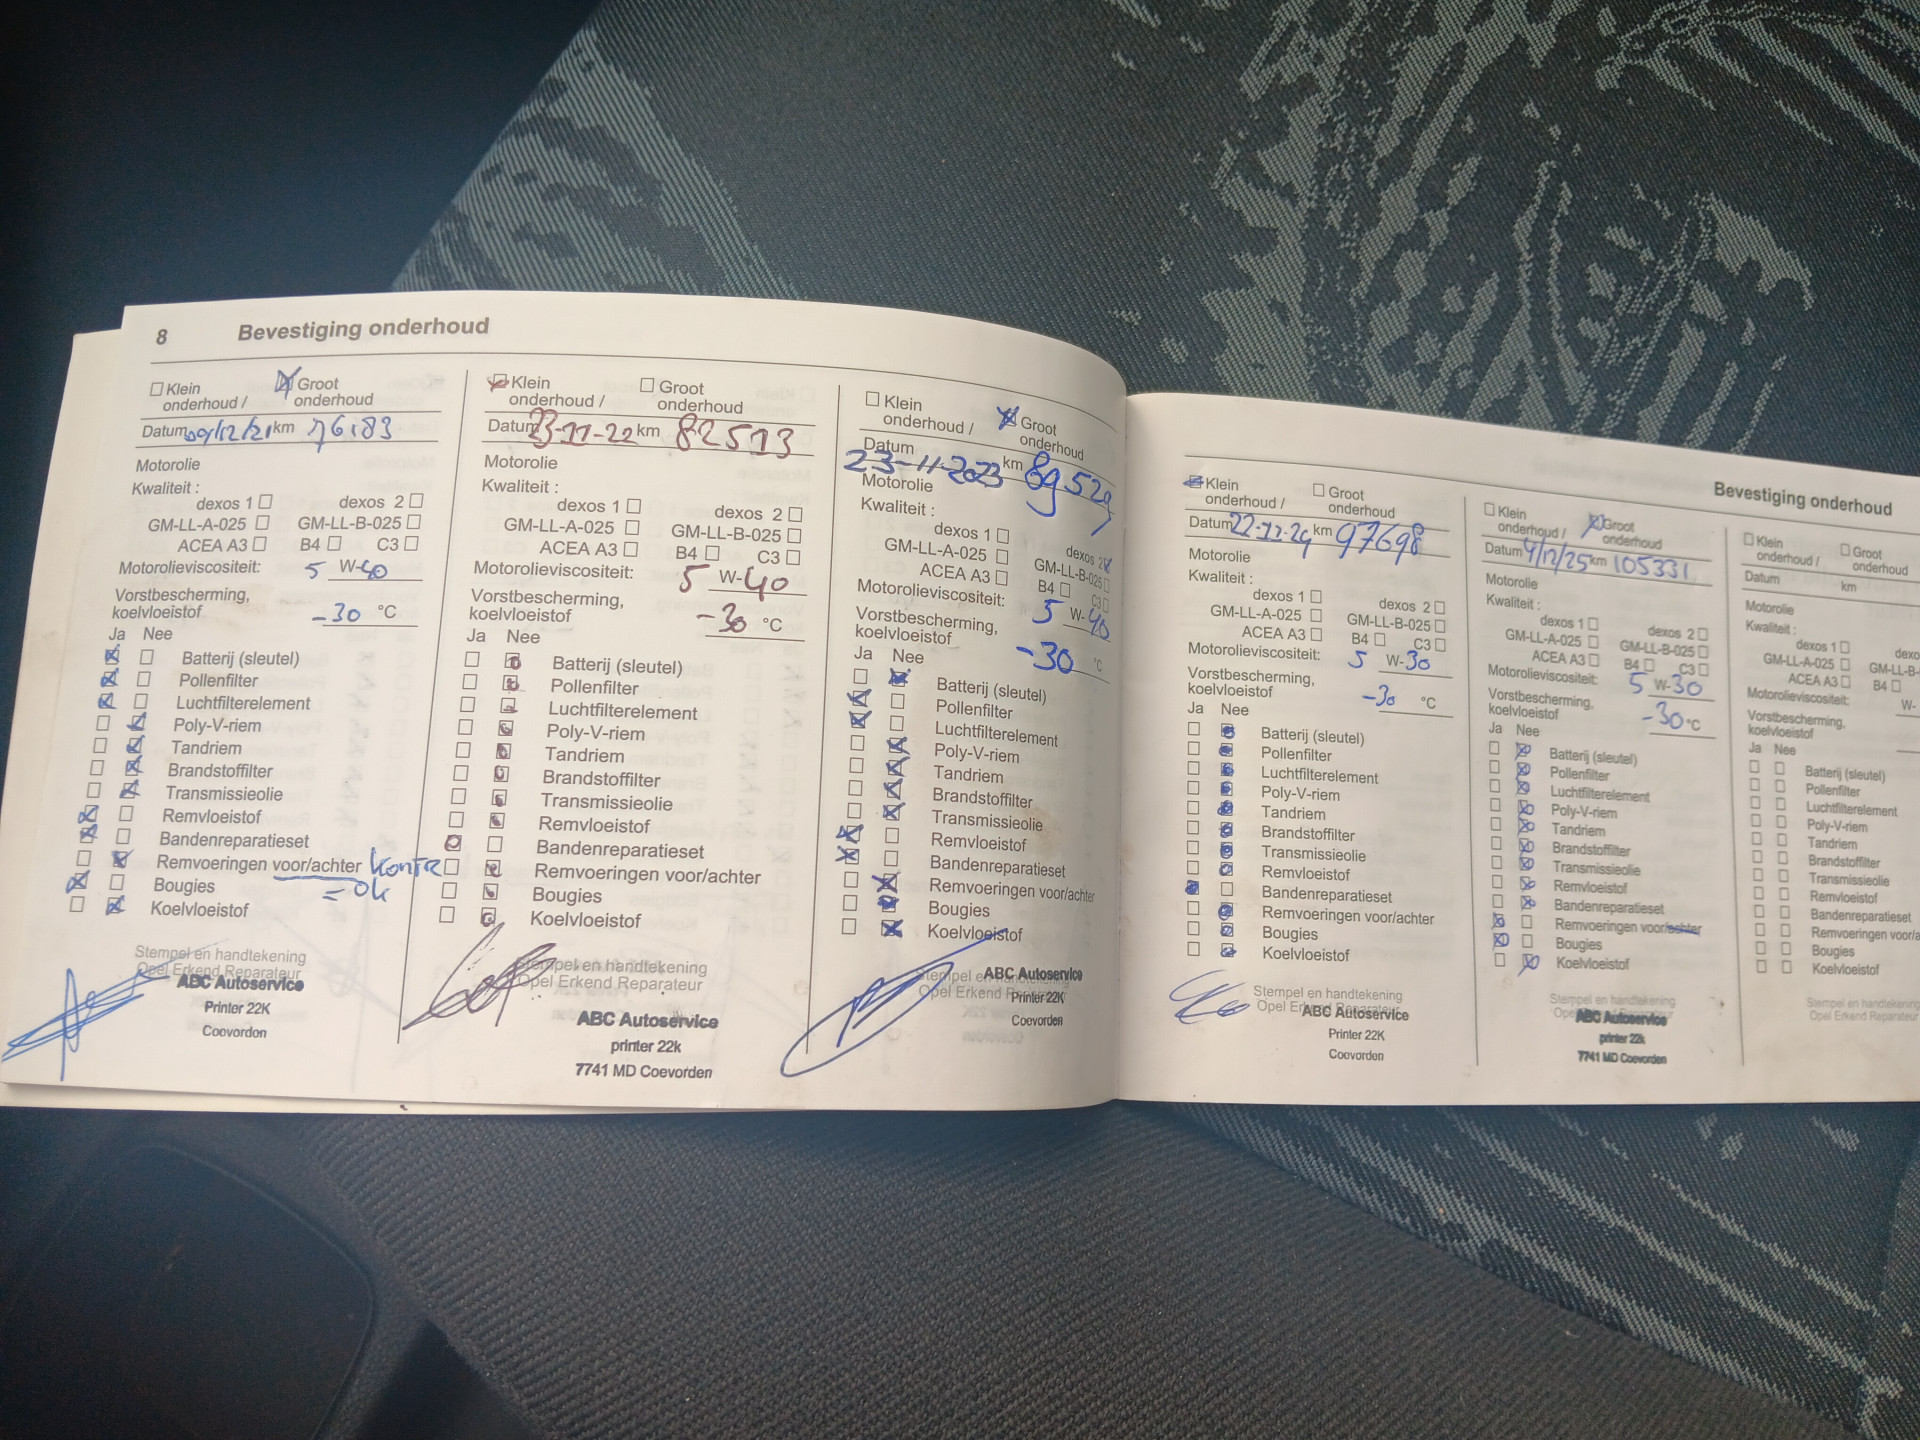 8 Bevestiging onderhoud
☐ Klein onderhoud / ☒ Groot onderhoud
Datum 09/12/21 km 76183
Motorolie
Kwaliteit :
dexos 1 ☐ dexos 2 ☐
GM-LL-A-025 ☐ GM-LL-B-025 ☐
ACEA A3 ☐ B4 ☐ C3 ☐
Motorolieviscositeit: 5 W-40
Vorstbescherming,
koelvloeistof -30 °C
Ja Nee
☒ ☐ Batterij (sleutel)
☒ ☐ Pollenfilter
☒ ☐ Luchtfilterelement
☐ ☒ Poly-V-riem
☐ ☒ Tandriem
☐ ☒ Brandstoffilter
☐ ☒ Transmissieolie
☒ ☐ Remvloeistof
☒ ☐ Bandenreparatieset
☐ ☒ Remvoeringen voor/achter
☒ ☐ Bougies = ok
☐ ☒ Koelvloeistof
Stempel en handtekening
Opel Erkend Reparateur
ABC Autoservice
Printer 22K
Coevorden
☒ Klein onderhoud / ☐ Groot onderhoud
Datum 23-11-22 km 82513
Motorolie
Kwaliteit :
dexos 1 ☐ dexos 2 ☐
GM-LL-A-025 ☐ GM-LL-B-025 ☐
ACEA A3 ☐ B4 ☐ C3 ☐
Motorolieviscositeit: 5 W-40
Vorstbescherming,
koelvloeistof -30 °C
Ja Nee
☐ ☒ Batterij (sleutel)
☐ ☒ Pollenfilter
☐ ☒ Luchtfilterelement
☐ ☒ Poly-V-riem
☐ ☒ Tandriem
☐ ☒ Brandstoffilter
☐ ☒ Transmissieolie
☐ ☒ Remvloeistof
☒ ☐ Bandenreparatieset
☐ ☒ Remvoeringen voor/achter
☐ ☒ Bougies
☐ ☒ Koelvloeistof
Stempel en handtekening
Opel Erkend Reparateur
ABC Autoservice
printer 22k
7741 MD Coevorden
☐ Klein onderhoud / ☒ Groot onderhoud
Datum 23-11-2023 km 89529
Motorolie
Kwaliteit :
dexos 1 ☐ dexos 2 ☒
GM-LL-A-025 ☐ GM-LL-B-025 ☐
ACEA A3 ☐ B4 ☐ C3 ☐
Motorolieviscositeit: 5 W-40
Vorstbescherming,
koelvloeistof -30 °C
Ja Nee
☐ ☒ Batterij (sleutel)
☒ ☐ Pollenfilter
☒ ☐ Luchtfilterelement
☐ ☒ Poly-V-riem
☐ ☒ Tandriem
☐ ☒ Brandstoffilter
☐ ☒ Transmissieolie
☒ ☐ Remvloeistof
☒ ☐ Bandenreparatieset
☐ ☒ Remvoeringen voor/achter
☐ ☒ Bougies
☐ ☒ Koelvloeistof
Stempel en handtekening
Opel Erkend Reparateur
ABC Autoservice
Printer 22K
Coevorden
Bevestiging onderhoud
☒ Klein onderhoud / ☐ Groot onderhoud
Datum 22-11-24 km 97698
Motorolie
Kwaliteit :
dexos 1 ☐ dexos 2 ☐
GM-LL-A-025 ☐ GM-LL-B-025 ☐
ACEA A3 ☐ B4 ☐ C3 ☐
Motorolieviscositeit: 5 W-30
Vorstbescherming,
koelvloeistof -30 °C
Ja Nee
☐ ☒ Batterij (sleutel)
☐ ☒ Pollenfilter
☐ ☒ Luchtfilterelement
☐ ☒ Poly-V-riem
☐ ☒ Tandriem
☐ ☒ Brandstoffilter
☐ ☒ Transmissieolie
☐ ☒ Remvloeistof
☒ ☐ Bandenreparatieset
☐ ☒ Remvoeringen voor/achter
☐ ☒ Bougies
☐ ☒ Koelvloeistof
Stempel en handtekening
Opel Erkend Reparateur
ABC Autoservice
Printer 22K
Coevorden
☐ Klein onderhoud / ☒ Groot onderhoud
Datum 4/12/25 km 105331
Motorolie
Kwaliteit :
dexos 1 ☐ dexos 2 ☐
GM-LL-A-025 ☐ GM-LL-B-025 ☐
ACEA A3 ☐ B4 ☐ C3 ☐
Motorolieviscositeit: 5 W-30
Vorstbescherming,
koelvloeistof -30 °C
Ja Nee
☐ ☒ Batterij (sleutel)
☐ ☒ Pollenfilter
☐ ☒ Luchtfilterelement
☐ ☒ Poly-V-riem
☐ ☒ Tandriem
☐ ☒ Brandstoffilter
☐ ☒ Transmissieolie
☐ ☒ Remvloeistof
☐ ☒ Bandenreparatieset
☒ ☐ Remvoeringen voor/achter
☒ ☐ Bougies
☐ ☒ Koelvloeistof
Stempel en handtekening
ABC Autoservice
printer 22k
7741 MD Coevorden
☐ Klein onderhoud / ☐ Groot onderhoud
Datum km
Motorolie
Kwaliteit :
dexos 1 ☐ dexo
GM-LL-A-025 ☐ GM-LL-B-
ACEA A3 ☐ B4 ☐
Motorolieviscositeit: W-
Vorstbescherming,
koelvloeistof
Ja Nee
☐ ☐ Batterij (sleutel)
☐ ☐ Pollenfilter
☐ ☐ Luchtfilterelement
☐ ☐ Poly-V-riem
☐ ☐ Tandriem
☐ ☐ Brandstoffilter
☐ ☐ Transmissieolie
☐ ☐ Remvloeistof
☐ ☐ Bandenreparatieset
☐ ☐ Remvoeringen voor/a
☐ ☐ Bougies
☐ ☐ Koelvloeistof
Stempel en handtekening
Opel Erkend Reparateur